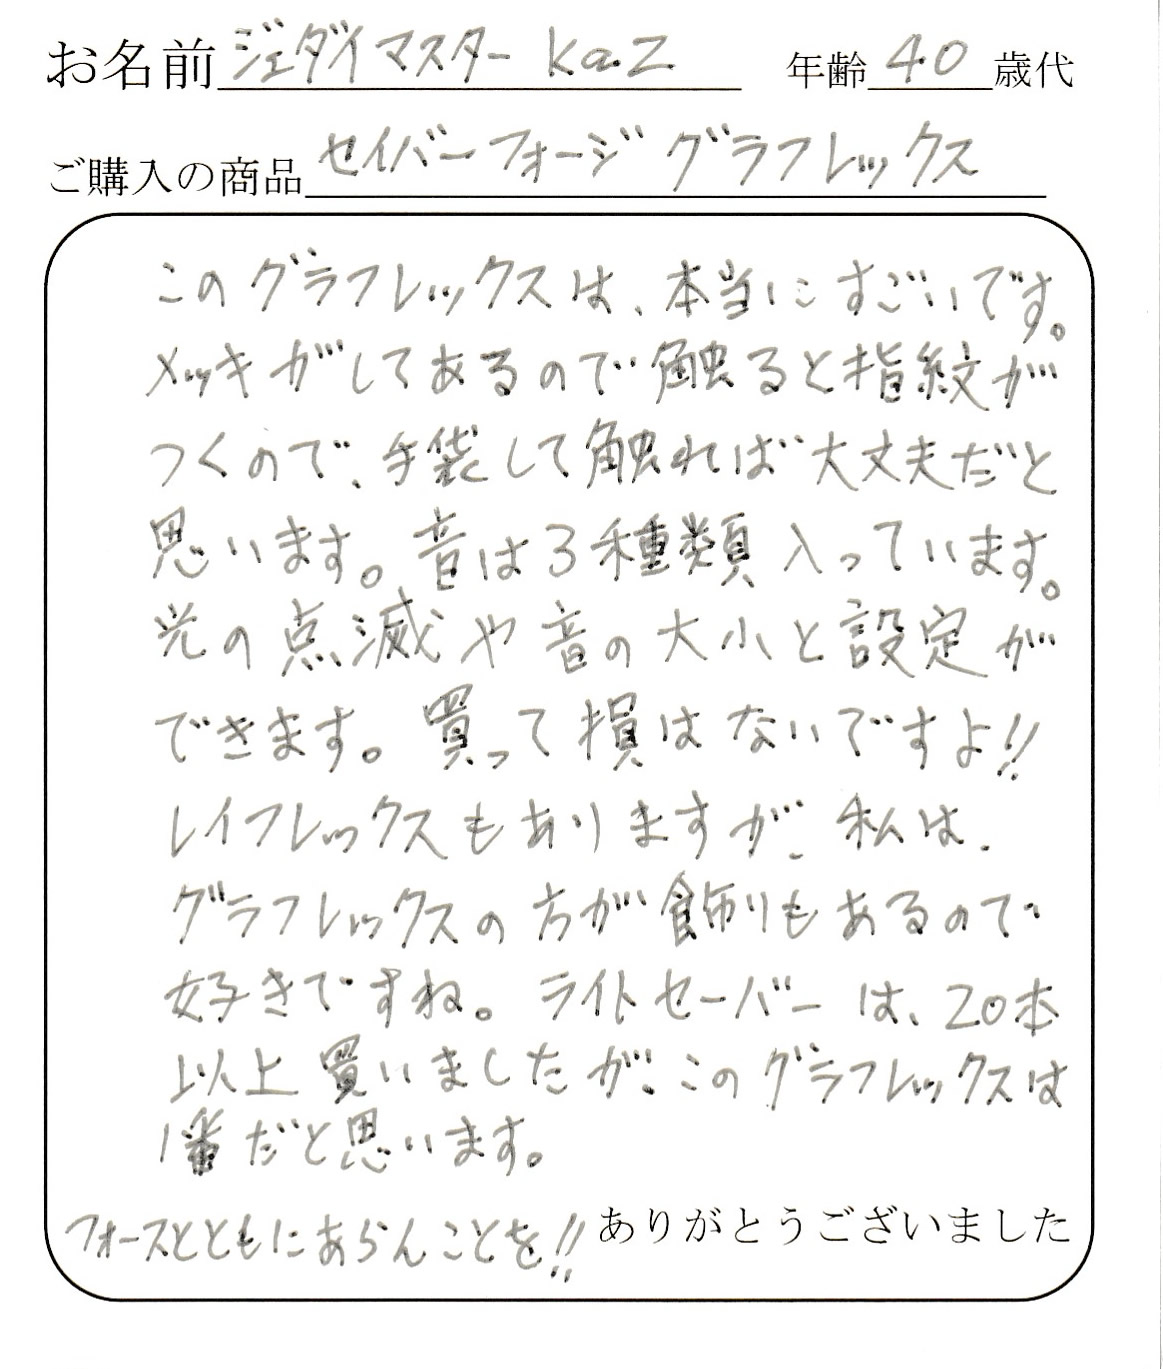 お名前 ジェダイマスター kaz 年齢 40 歳代
ご購入の商品 セイバーフォージ グラフレックス
このグラフレックスは、本当にすごいです。
メッキがしてあるので触ると指紋が
つくので、手袋して触れば大丈夫だと
思います。音は3種類入っています。
光の点滅や音の大小と設定が
できます。買って損はないですよ!!
レイフレックスもありますが、私は、
グラフレックスの方が飾りもあるので
好きですね。ライトセーバーは、20本
以上買いましたが、このグラフレックスは
1番だと思います。
フォースとともにあらんことを!! ありがとうございました